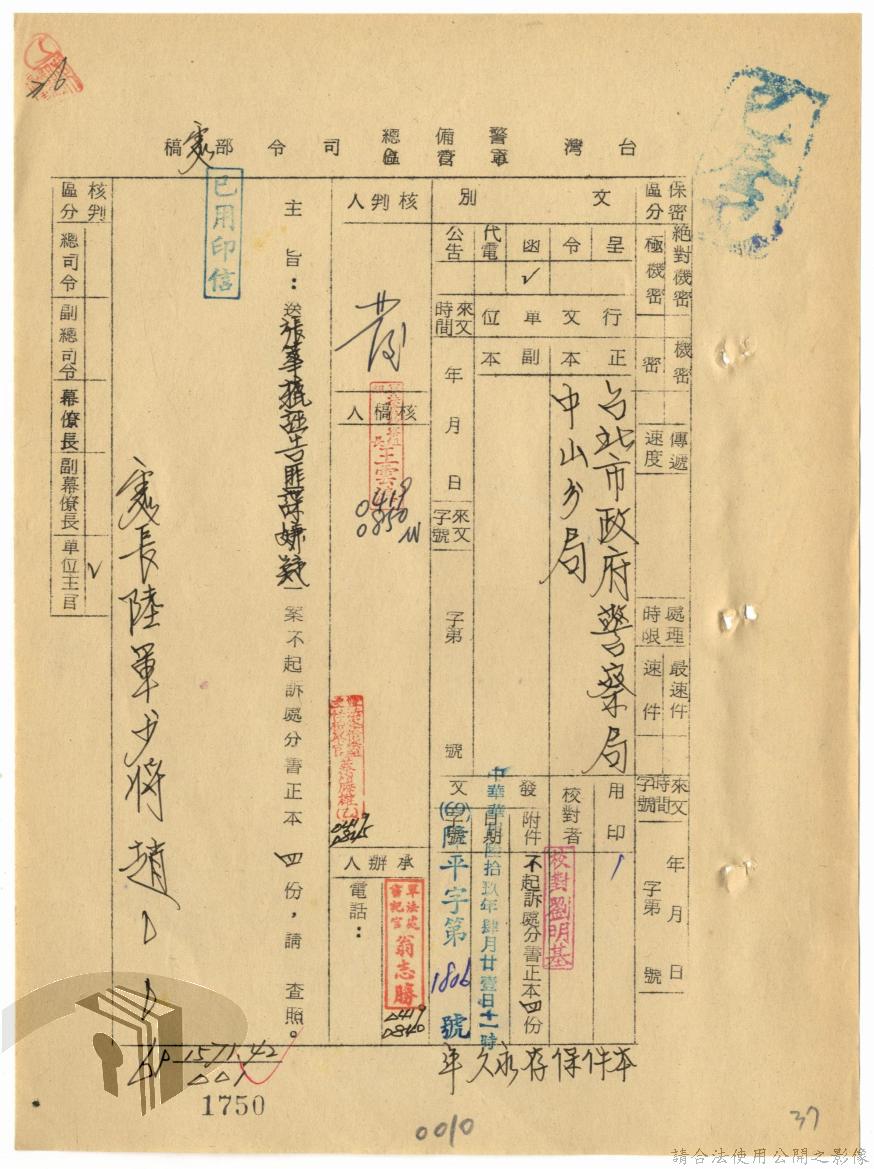 台灣警備總司令部稿
保密區分
絕對機密
極機密
機密
密
傳遞速度
處理時限
最速件
速件
來文時間字號
年 月 日
字第 號
文別
呈
令
函
代電
公告
行文單位
正本
副本
台北市政府警察局
中山分局
用印
校對者
校對劉明基
發文
附件
不起訴處分書正本四份
日期
中華民國陸拾玖年肆月廿壹日十一時
字號
(69)隆平字第1806號
來文時間
年 月 日
來文字號
字第 號
核判人
核稿人
0419
0850
0419
0845
承辦人
軍法處書記官翁志勝
0419
0840
電話：
主旨：送
誣告匪諜嫌疑一案不起訴處分書正本四份，請 查照。
已用印信
處長陸軍少將趙
核判區分
總司令
副總司令
幕僚長
副幕僚長
單位主官
本件保存永久年
1571.42
1750
0010
37
請合法使用公開之影像